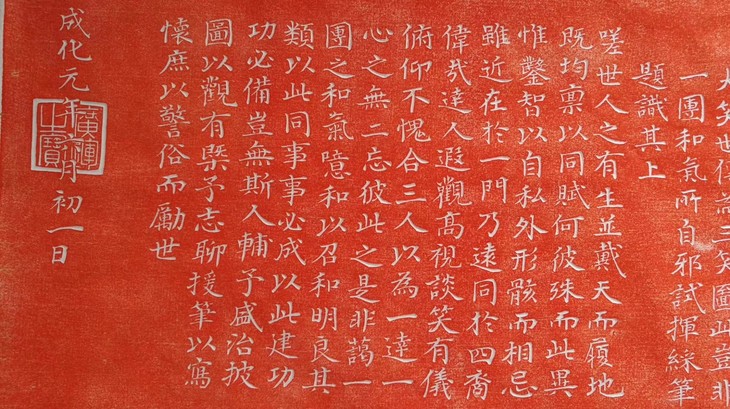 大笑世傳為三笑圖此豈非
一團和氣所自邪試揮綵筆
題識其上
嗟世人之有生並戴天而履地
既均禀以同賦何彼殊而此異
惟鑿智以自私外形骸而相忌
雖近在於一門乃遠同於四裔
偉哉達人遐觀高視談笑有儀
俯仰不愧合三人以為一達一
心之無二忘彼此之是非藹一
團之和氣噫和以召和明良其
類以此同事事必成以此建功
功必備豈無斯人輔予盛治披
圖以觀有槩予志聊援筆以寫
懷庶以警俗而勵世
成化元年六月初一日
廣運之寶